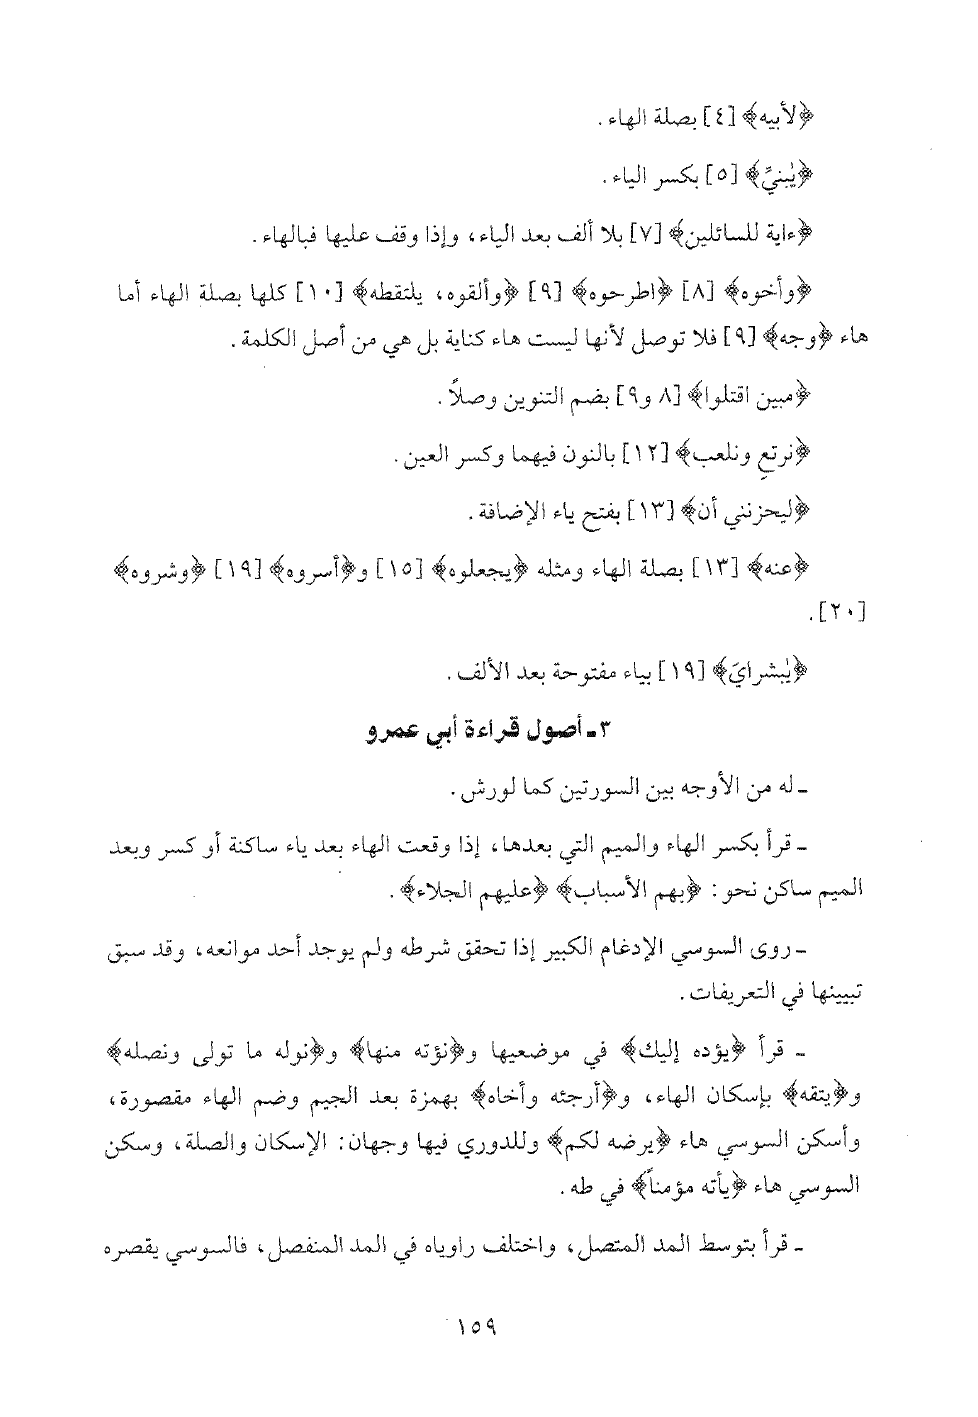 ﴿لأبيه﴾ [٤] بصلة الهاء .
﴿يٰبنيِّ﴾ [٥] بكسر الياء .
﴿ءاية للسائلين﴾ [٧] بلا ألف بعد الياء، وإذا وقف عليها فبالهاء .
﴿وأخوه﴾ [٨] ﴿اطرحوه﴾ [٩] ﴿وألقوه، يلتقطه﴾ [١٠] كلها بصلة الهاء أما
هاء ﴿وجه﴾ [٩] فلا توصل لأنها ليست هاء كناية بل هي من أصل الكلمة .
﴿مبين اقتلوا﴾ [٨ و٩] بضم التنوين وصلاً .
﴿نرتعِ ونلعب﴾ [١٢] بالنون فيهما وكسر العين .
﴿ليحزنني أن﴾ [١٣] بفتح ياء الإضافة .
﴿عنه﴾ [١٣] بصلة الهاء ومثله ﴿يجعلوه﴾ [١٥] و﴿أسروه﴾ [١٩] ﴿وشروه﴾
[٢٠] .
﴿يٰبشرايَ﴾ [١٩] بياء مفتوحة بعد الألف .
٣ـ أصول قراءة أبي عمرو
ـ له من الأوجه بين السورتين كما لورش .
ـ قرأ بكسر الهاء والميم التي بعدها، إذا وقعت الهاء بعد ياء ساكنة أو كسر وبعد
الميم ساكن نحو : ﴿بهم الأسباب﴾ ﴿عليهم الجلاء﴾ .
ـ روى السوسي الإدغام الكبير إذا تحقق شرطه ولم يوجد أحد موانعه، وقد سبق
تبيينها في التعريفات .
ـ قرأ ﴿يؤده إليك﴾ في موضعيها و﴿نؤته منها﴾ و﴿نوله ما تولى ونصله﴾
و﴿يتقه﴾ بإسكان الهاء، و﴿أرجئه وأخاه﴾ بهمزة بعد الجيم وضم الهاء مقصورة،
وأسكن السوسي هاء ﴿يرضه لكم﴾ وللدوري فيها وجهان : الإسكان والصلة، وسكن
السوسي هاء ﴿يأته مؤمناً﴾ في طه .
ـ قرأ بتوسط المد المتصل، واختلف راوياه في المد المنفصل، فالسوسي يقصره
١٥٩